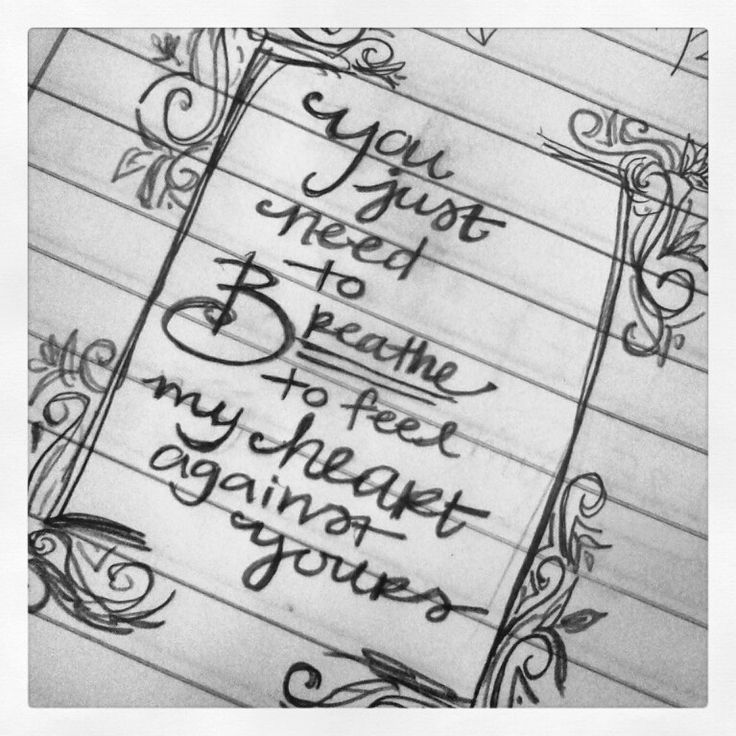 you
just
need
to
Breathe
to feel
my heart
against
yours